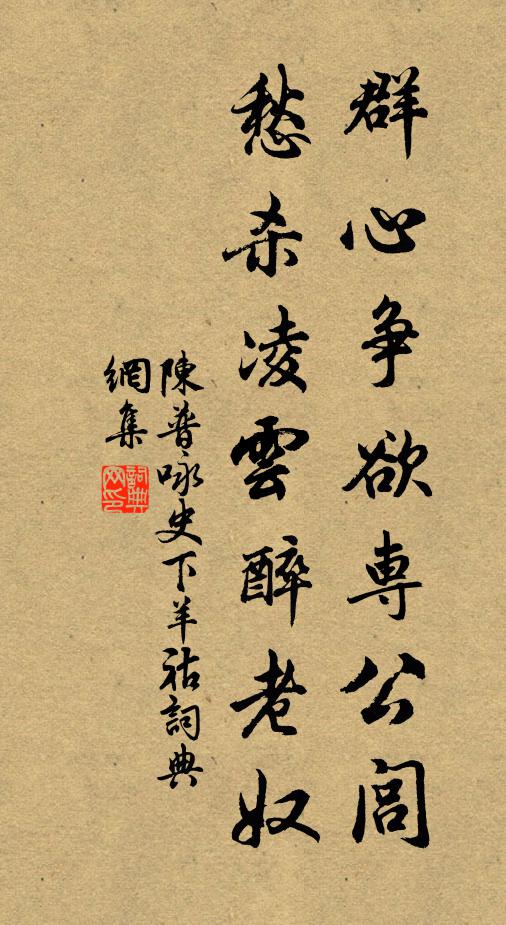 群心争欲専公閭
愁杀凌雲醉老奴
陳普咏史下羊祜詞典
網集
詞典网印